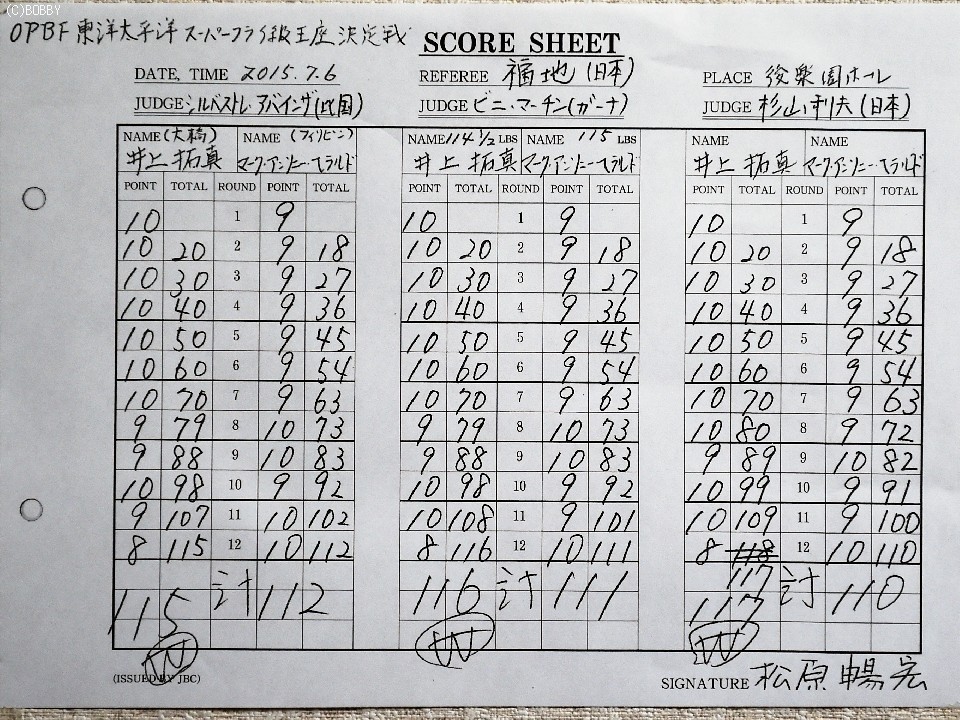 (C)BOBBY
OPBF 東洋太平洋 スーパーフライ級王座決定戦
SCORE SHEET
DATE, TIME 2015.7.6 REFEREE 福地(日本) PLACE 後楽園ホール
JUDGE シルベストレ アバインザ(比国) JUDGE ビニ・マーチン(ガーナ) JUDGE 杉山利夫(日本)
NAME (大橋) NAME (フィリピン) NAME 114 1/2 LBS NAME 115 LBS NAME NAME
井上 拓真 マーク・アンソニー・ヘラルド 井上 拓真 マーク・アンソニー・ヘラルド 井上 拓真 マーク・アンソニー・ヘラルド
POINT TOTAL ROUND POINT TOTAL POINT TOTAL ROUND POINT TOTAL POINT TOTAL ROUND POINT TOTAL
10 1 9 10 1 9 10 1 9
10 20 2 9 18 10 20 2 9 18 10 20 2 9 18
10 30 3 9 27 10 30 3 9 27 10 30 3 9 27
10 40 4 9 36 10 40 4 9 36 10 40 4 9 36
10 50 5 9 45 10 50 5 9 45 10 50 5 9 45
10 60 6 9 54 10 60 6 9 54 10 60 6 9 54
10 70 7 9 63 10 70 7 9 63 10 70 7 9 63
9 79 8 10 73 9 79 8 10 73 10 80 8 9 72
9 88 9 10 83 9 88 9 10 83 9 89 9 10 82
10 98 10 9 92 10 98 10 9 92 10 99 10 9 91
9 107 11 10 102 10 108 11 9 101 10 109 11 9 100
8 115 12 10 112 8 116 12 10 111 8 118 12 10 110
117
115 計 112 116 計 111 117 計 110
W W W
(ISSUED BY JBC) SIGNATURE 松原 暢宏